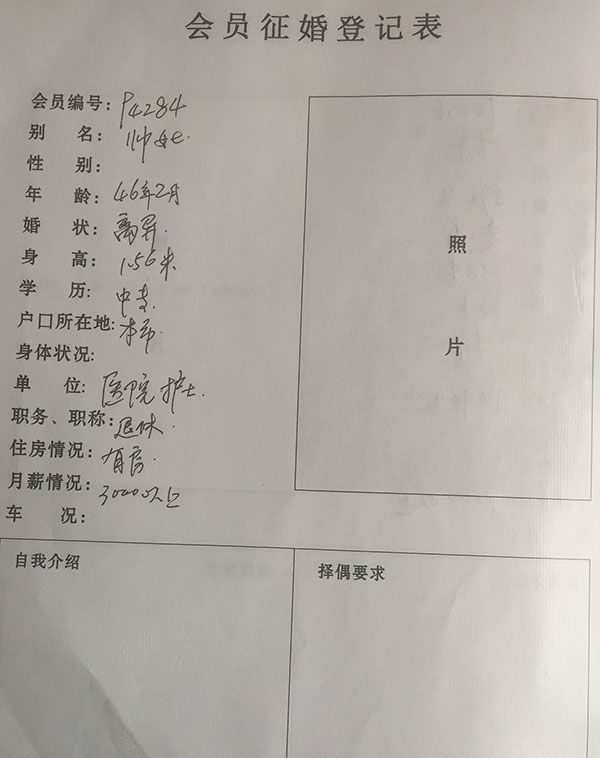 会员征婚登记表
会员编号：P4284
别 名：帅
性 别：
年 龄：46年2月
婚 状：离异.
身 高：1.56米
学 历：中专.
户口所在地：本市.
身体状况：
单 位：医院护士.
职务、职称：退休.
住房情况：有房.
月薪情况：3000以上
车 况：
照
片
自我介绍
择偶要求